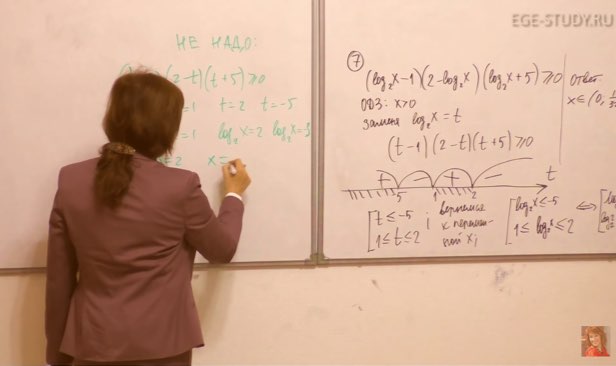 EGE-STUDY.RU
НЕ НАДО:
(2-t)(t+5)≥0
=1 t=2 t=-5
=1 log₂x=2
=2 x=
⑦
(log₂x-1)(2-log₂x)(log₂x+5)≥0
ОДЗ: x>0
замена log₂x=t
(t-1)(2-t)(t+5)≥0
+ - + - t
-5 1 2
[t≤-5
1≤t≤2
;
вернёмся
к перемен-
ной x;
[log₂x≤-5
1≤log₂x≤2
⇔
ответ
x∈(0;